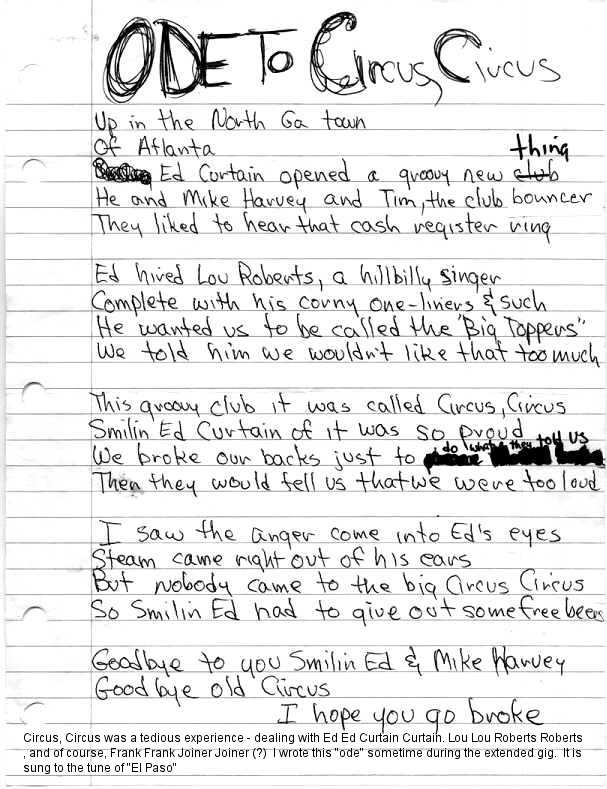 ODE TO Circus, Circus
Up in the North Ga town
Of Atlanta
thing
Ed Curtain opened a groovy new club
He and Mike Harvey and Tim, the club bouncer
They liked to hear that cash register ring
Ed hired Lou Roberts, a hillbilly singer
Complete with his corny one-liners & such
He wanted us to be called the "Big Toppers"
We told him we wouldn't like that too much
This groovy club it was called Circus, Circus
Smilin Ed Curtain of it was so proud
do what they told us
We broke our backs just to
Then they would tell us that we were too loud
I saw the anger come into Ed's eyes
Steam came right out of his ears
But nobody came to the big Circus Circus
So Smilin Ed had to give out some free beers
Goodbye to you Smilin Ed & Mike Harvey
Goodbye old Circus
I hope you go broke
Circus, Circus was a tedious experience - dealing with Ed Ed Curtain Curtain. Lou Lou Roberts Roberts
, and of course, Frank Frank Joiner Joiner (?)  I wrote this "ode" sometime during the extended gig.  It is
sung to the tune of "El Paso"